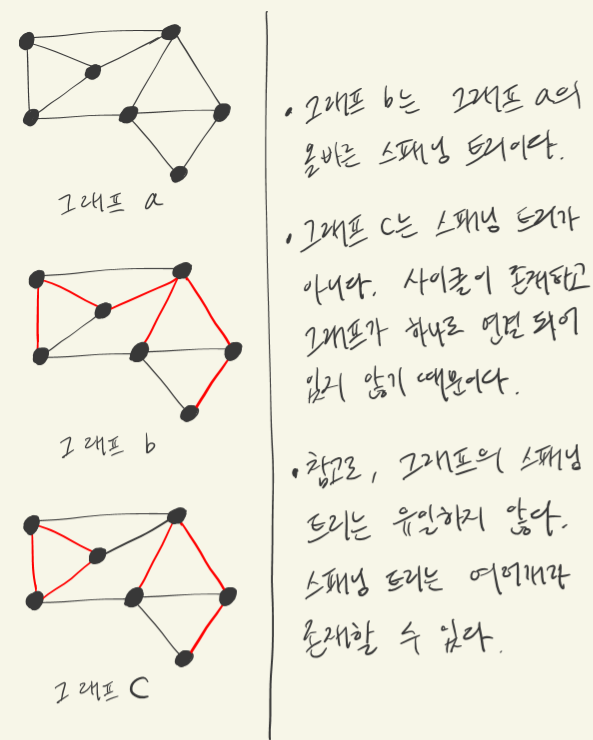 그래프 a
그래프 b
그래프 C
• 그래프 b는 그래프 a의
올바른 스패닝 트리이다.
• 그래프 C는 스패닝 트리가
아니다. 사이클이 존재하고
그래프가 하나로 연결 되어
있지 않기 때문이다.
• 참고로, 그래프의 스패닝
트리는 유일하지 않다.
스패닝 트리는 여러개가
존재할 수 있다.